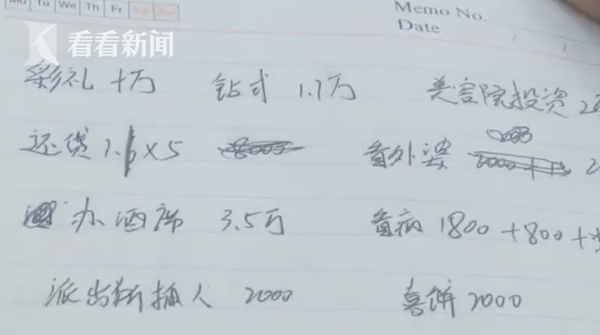 Mo Tu We Th Fr Sa Su
Memo No.
Date
看看新闻
彩礼 十万 钻式 1.7万 美容院投资 2
还贷 1.6×5 看外婆 2000
办酒席 3.5万 看病 1800+800+
派出所捕人 2000 喜饼 2000